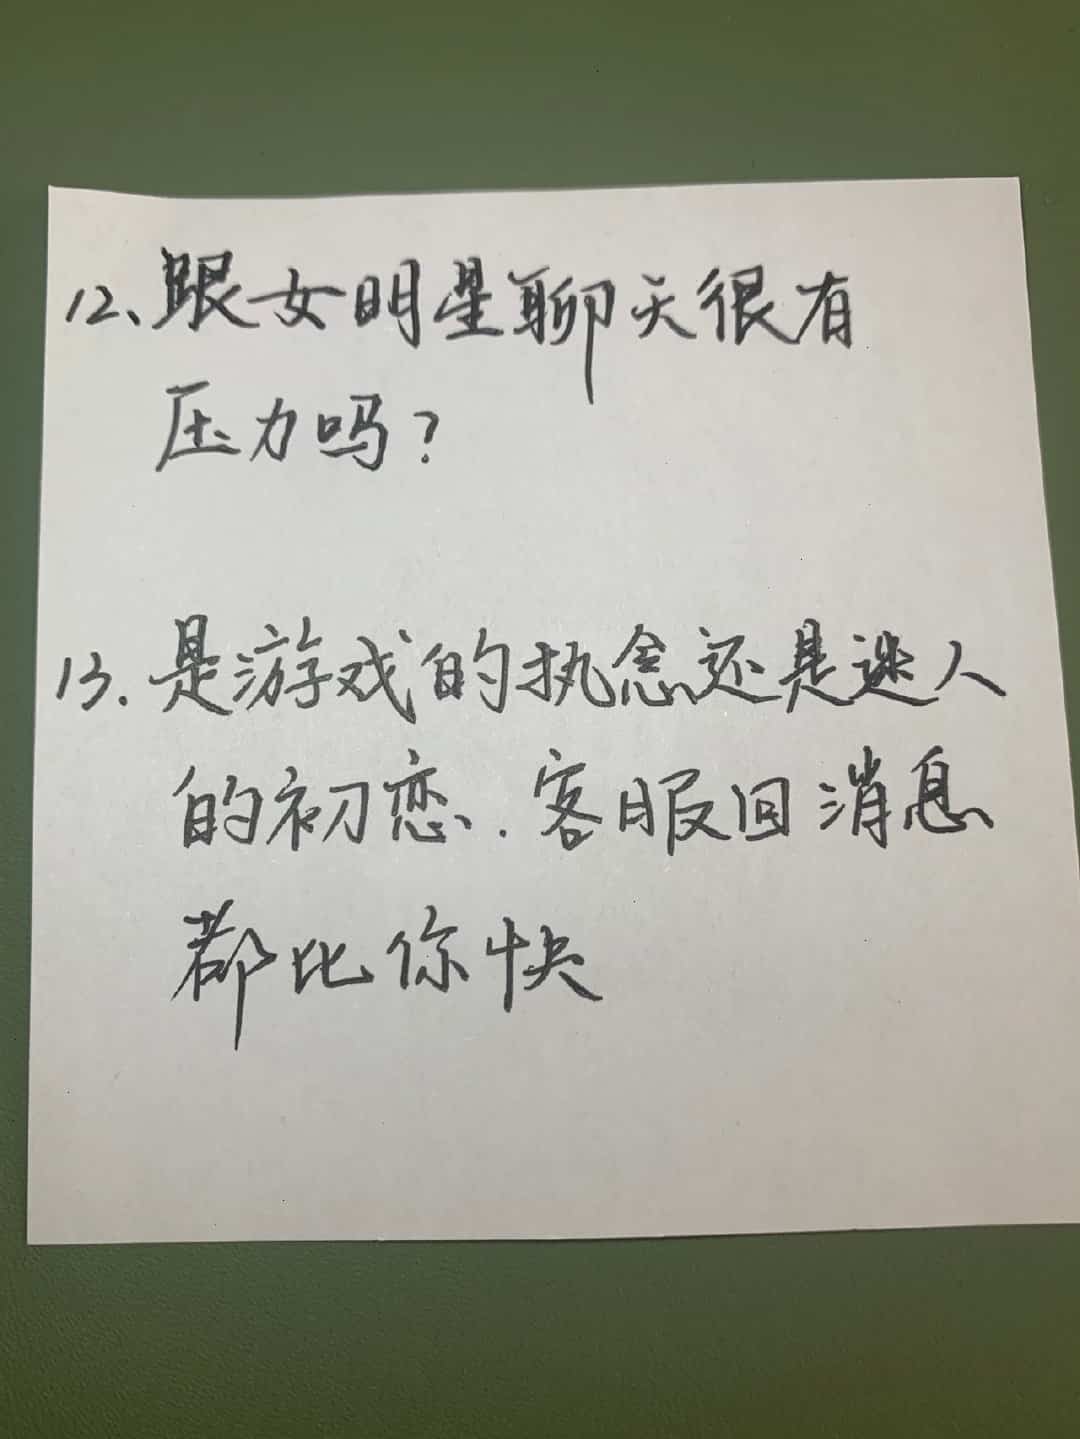 12、跟女明星聊天很有
压力吗？
13.是游戏的执念还是迷人
的初恋.客服回消息
都比你快